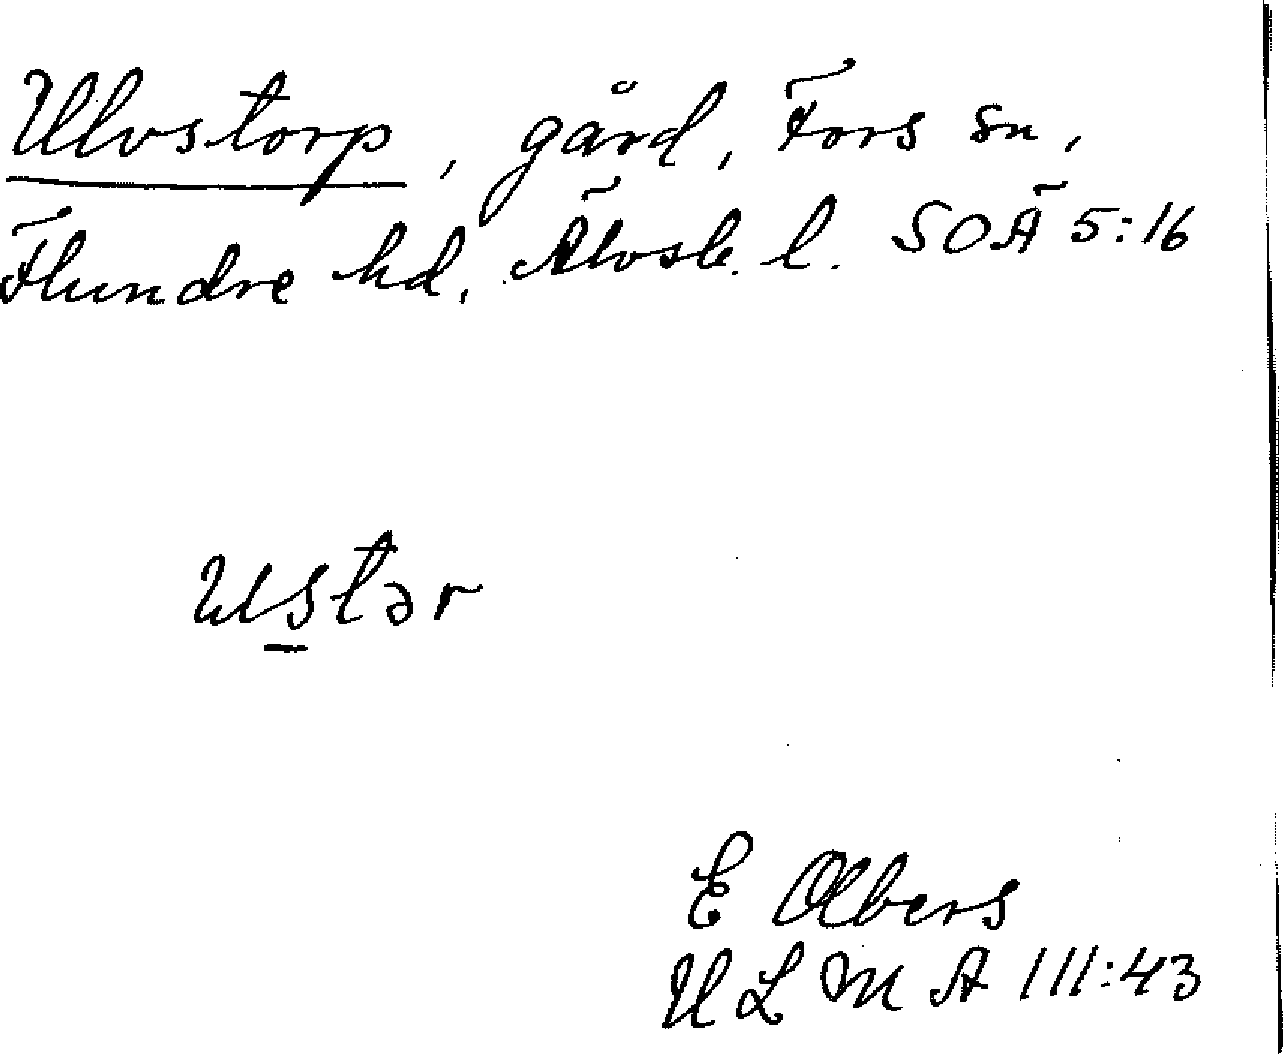 Ulvstorp, gård, Fors sn,
Flundre hd, Älvsb. l. SOÄ 5:16
Ulstər
E Olbers
ULMA 111:43